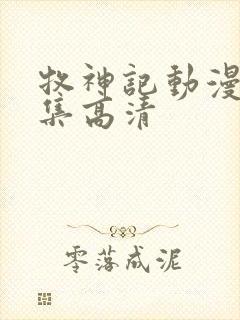 牧神記動漫
集高清
零落成泥